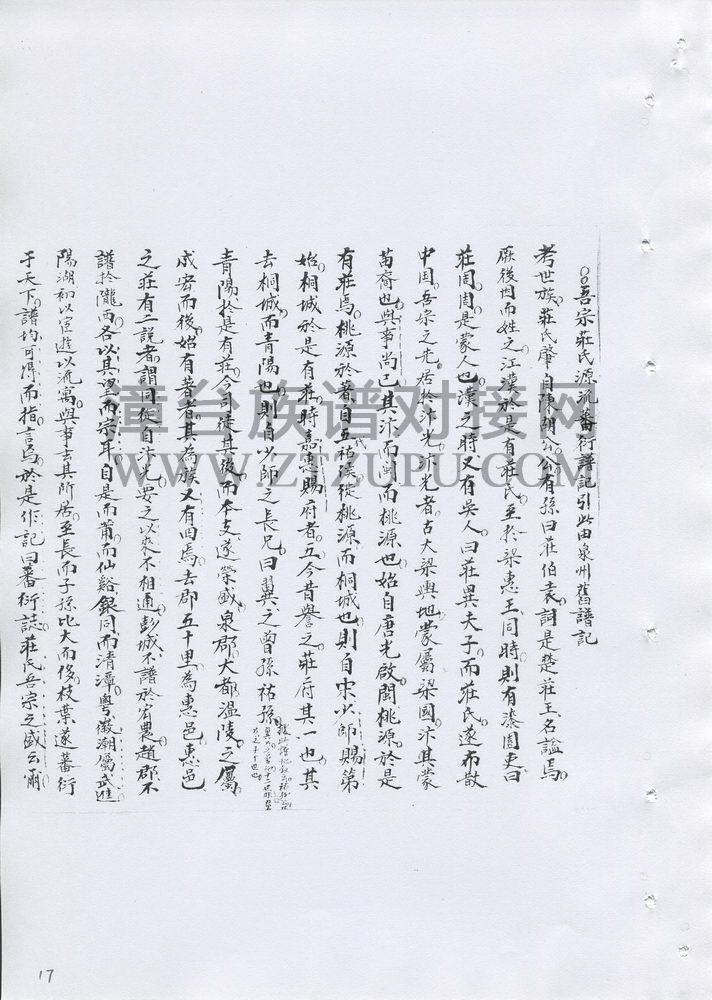 吾宗莊氏源流蕃衍譜記引此由泉州舊譜記
考世族莊氏肇自陳胡公公有孫曰莊伯袁詞是楚莊王名謚焉
厥後因而姓之江漢於是有莊氏至於梁惠王同時則有漆園吏曰
莊周周是蒙人也漢之時又有吳人曰莊異夫子而莊氏遂布散
中国吾宗之先居於汴光汴光者古大梁與地蒙屬梁國汴其蒙
苗裔也與尚已其汴而閩而桃源也始自唐光啟閩桃源於是
有莊焉桃源於著自五祐溪徙桃源而桐城也則自宋少師賜第
始桐城於是有莊時嘉惠賜府者五今昔譽之莊府其一也其
去桐城而青陽也則自少師之長兄曰翼之曾孫祐孫
青陽於是有莊今司徒其後而本支遂榮盛泉郡大都溫陵之屬
咸宗而後始有著者其為族又有曰焉去郡五十里為惠邑惠邑
之莊有一說者謂同從自汴光要之以來不相通彭城不譜於宥農趙郡不
譜於隴西各以其望而宗耳自是而莆而仙谿銀同而清漳粵徽潮屬武進
陽湖初以宦遊以流寓與事去其所居至長而子孫比大而後枝葉遂蕃衍
于天下譜均可得而指言焉於是作記曰蕃衍誌莊氏吾宗之盛云爾
漳台族谱对接网
WWW.ZTZUPU.COM
17